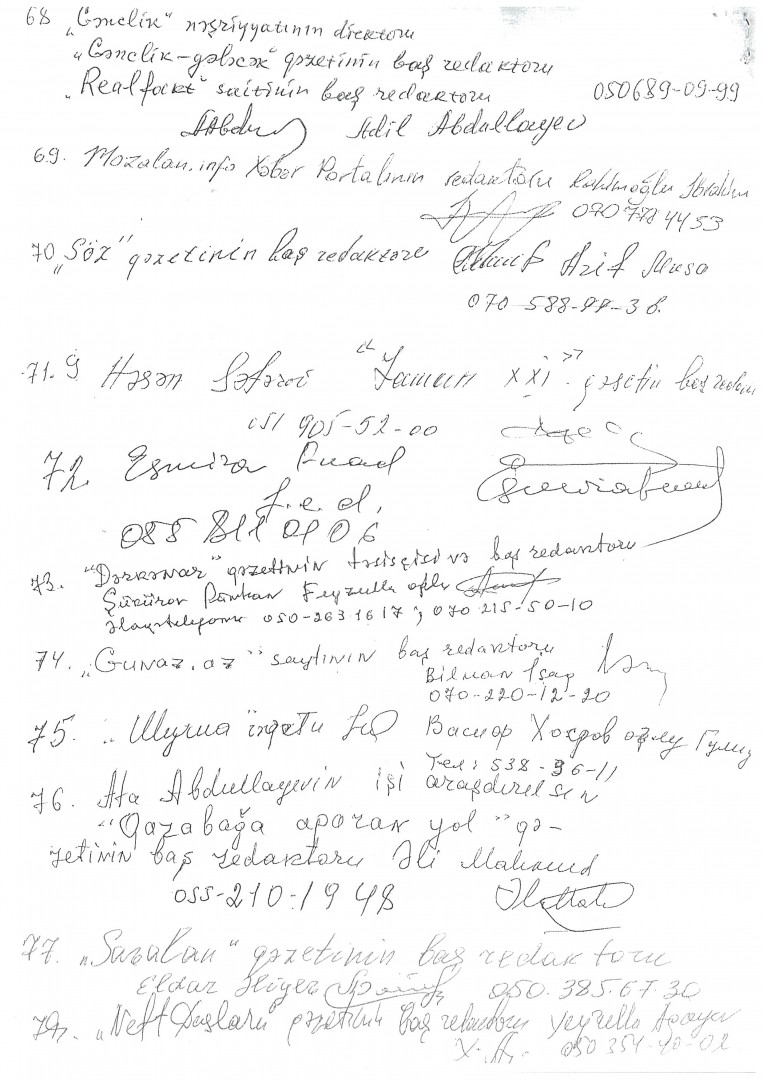 68 „Gənclik“ nəşriyyatının direktoru
„Gənclik-gələcək“ qəzetinin baş redaktoru
„Realfakt“ saitinin baş redaktoru 050689-09-99
Adil Abdullayev
69. Mozalan.info Xəbər Portalının redaktoru Rəhimoğlu İbrahim
070 778 44 53
70 „Söz“ qəzetinin baş redaktoru Azif Musa
070-588-99-36.
71. Həsən Səfərov "Zaman XXI" qəzetin baş redak
051 905-52-00
72. Esmira Fuad
f.e.d.
055 811 01 06
73. "Dərkənar" qəzetinin təsisçisi və baş redaktoru
Şükürov Feyzulla oğlu
050-263 16 17; 070 215-50-10
74. „Gunaz.az“ saytının baş redaktoru
Bilman
070-220-12-20
75. „Шуша“ Васиф Хосров оғлу
Тел: 538-36-11
76. Ata Abdullayevin işi araşdırılsın
"Qazabağa aparan yol" qə-
zetinin baş redaktoru Əli Mahmud
055-210-19 48
77. „Savalan“ qəzetinin baş redaktoru
Eldar 050.385.67.30
„Neft Daşları“ qəzetinin baş redaktoru
050 354-40-02